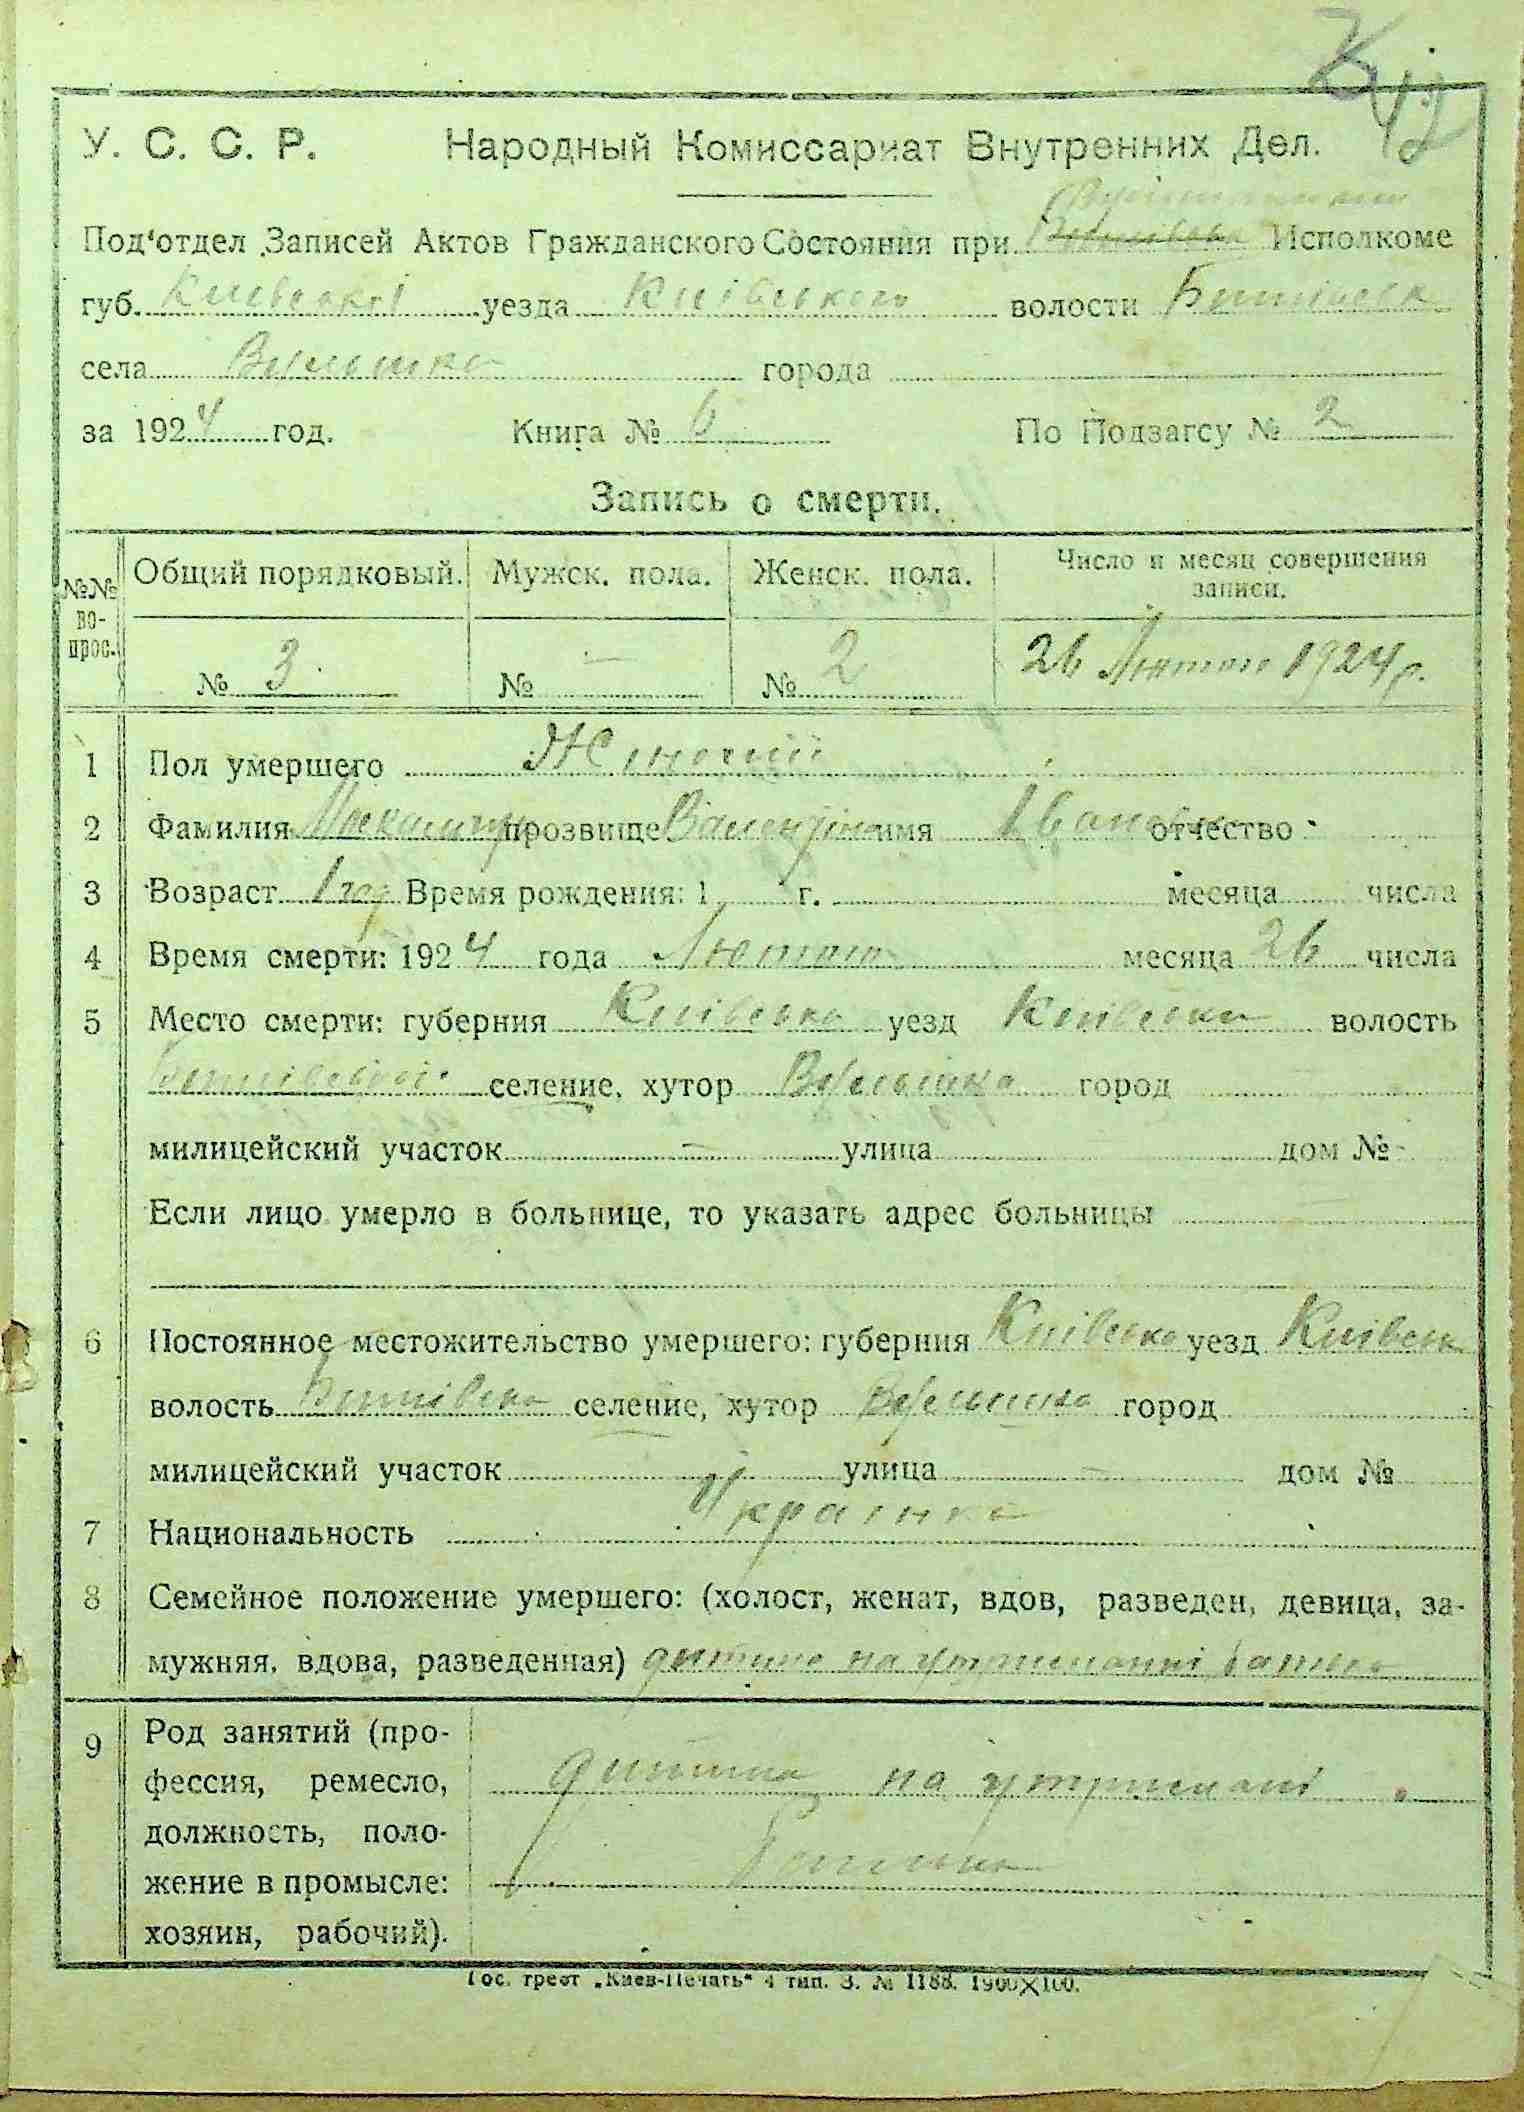 42
У. С. С. Р. Народный Комиссариат Внутренних Дел.
Под'отдел Записей Актов Гражданского Состояния при Исполкоме
губ. Київської уезда Київського волости
села города
за 1924 год. Книга № 6 По Подзагсу № 2
Запись о смерти.
№№ вопрос. Общий порядковый. Мужск. пола. Женск. пола. Число и месяц совершения записи.
№ 3 № — № 2 26 Лютого 1924 р.
1 Пол умершего Жіночий
2 Фамилия прозвище Валентіна имя Івановна отчество
3 Возраст 1 год Время рождения: 1 г. месяца числа
4 Время смерти: 1924 года Лютого месяца 26 числа
5 Место смерти: губерния Київська уезд Київська волость
селение, хутор город
милицейский участок — улица дом №
Если лицо умерло в больнице, то указать адрес больницы
6 Постоянное местожительство умершего: губерния Київська уезд Київськ
волость селение, хутор город
милицейский участок улица — дом №
7 Национальность Українка
8 Семейное положение умершего: (холост, женат, вдов, разведен, девица, за-
мужняя, вдова, разведенная) дитина на утриманні батька
9 Род занятий (про-
фессия, ремесло, дитина на утримані
должность, поло-
жение в промысле: батька
хозяин, рабочий).
Гос. трест „Киев-Печать“ 4 тип. З. № 1188. 1900×100.